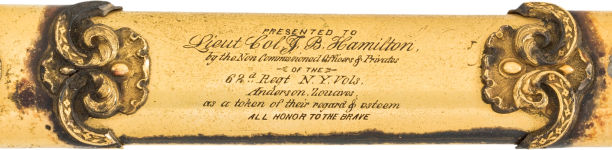 PRESENTED TO
Lieut Col J. B. Hamilton,
by the Non Commissioned Officers & Privates
OF THE
62d Regt N.Y. Vols.
Anderson Zouaves,
as a token of their regard & esteem
ALL HONOR TO THE BRAVE